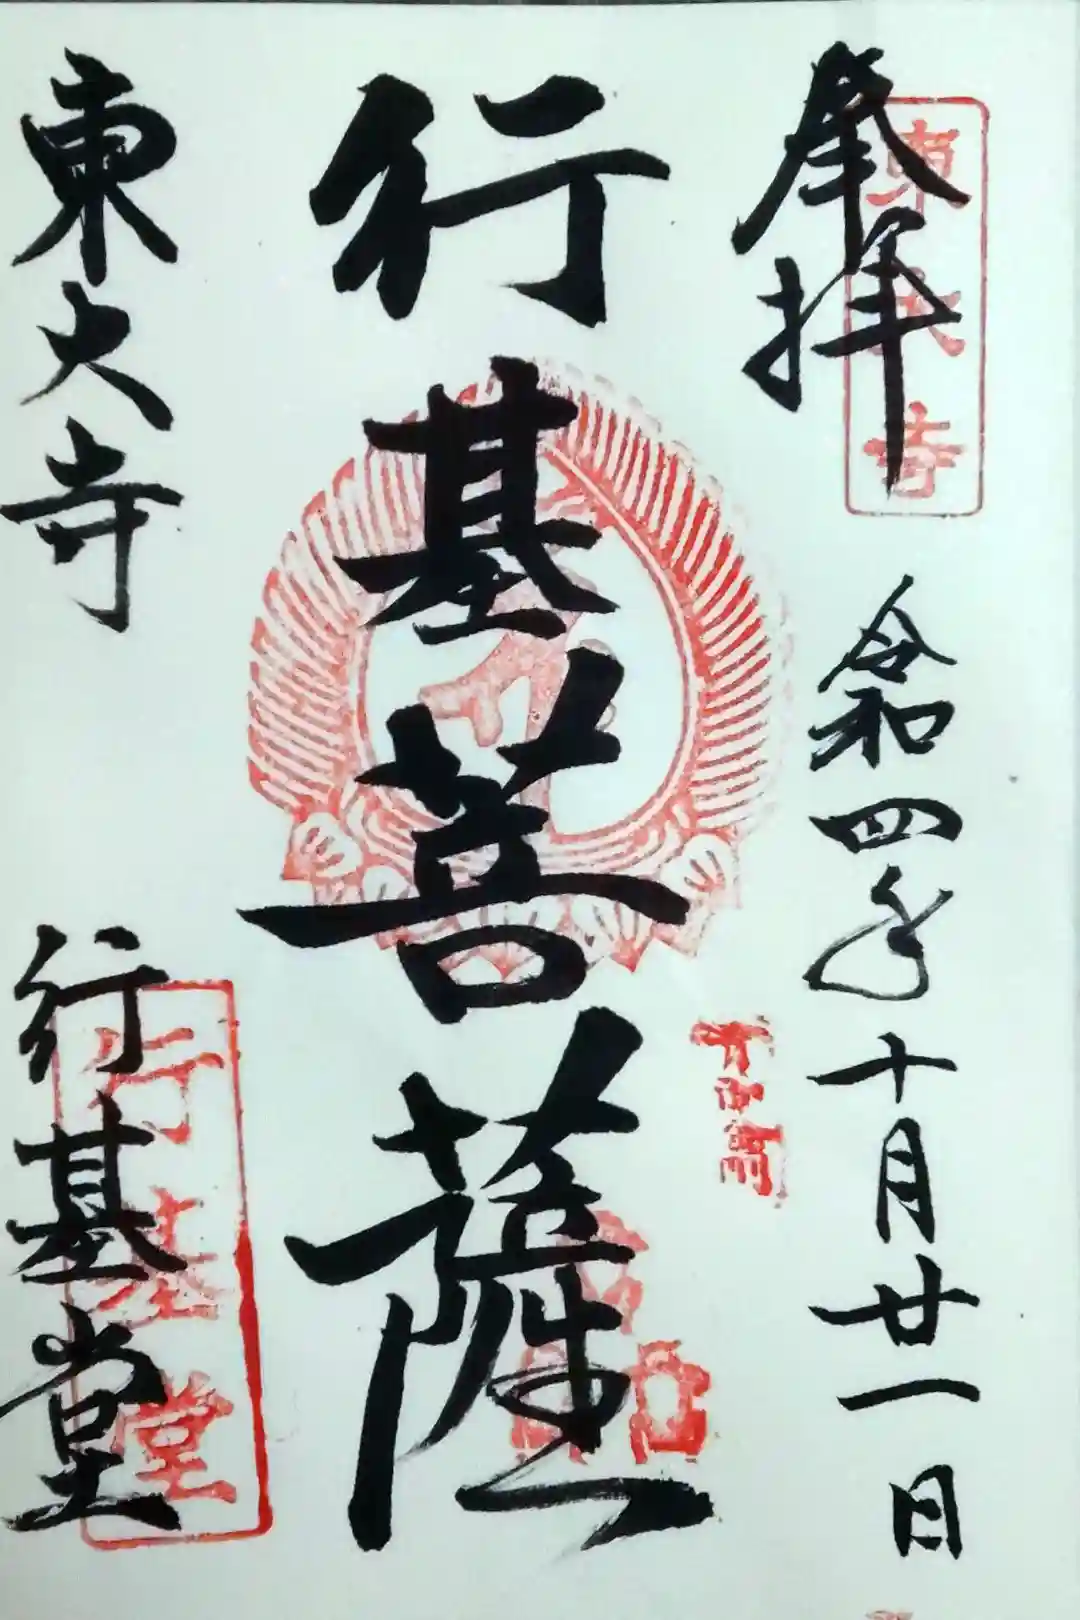 奉拝
東大寺
令和四年十月廿一日
行基菩薩
東大寺
行基堂
行基堂